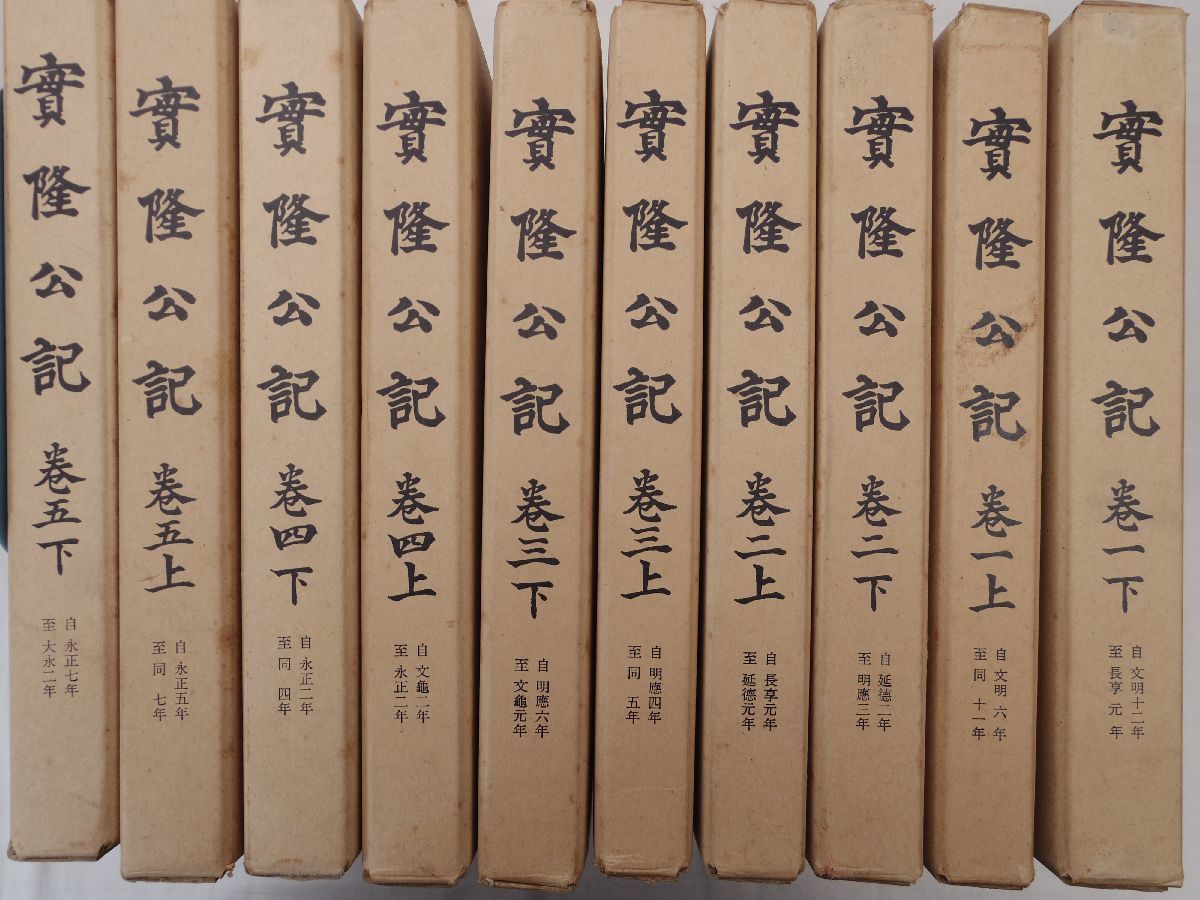 實隆公記 卷一下
自 文明十二年
至 長享 元 年
實隆公記 卷一上
自 文明 六 年
至 同 十一年
實隆公記 卷二下
自 延德二年
至 明應三年
實隆公記 卷二上
自 長享元年
至 延德元年
實隆公記 卷三上
自 明應四年
至 同 五年
實隆公記 卷三下
自 明應六年
至 文龜元年
實隆公記 卷四上
自 文龜二年
至 永正二年
實隆公記 卷四下
自 永正二年
至 同 四年
實隆公記 卷五上
自 永正五年
至 同 七年
實隆公記 卷五下
自 永正七年
至 大永二年